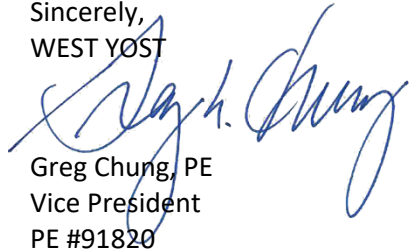 Sincerely,
WEST YOST
Greg h. Chung
Greg Chung, PE
Vice President
PE #91820